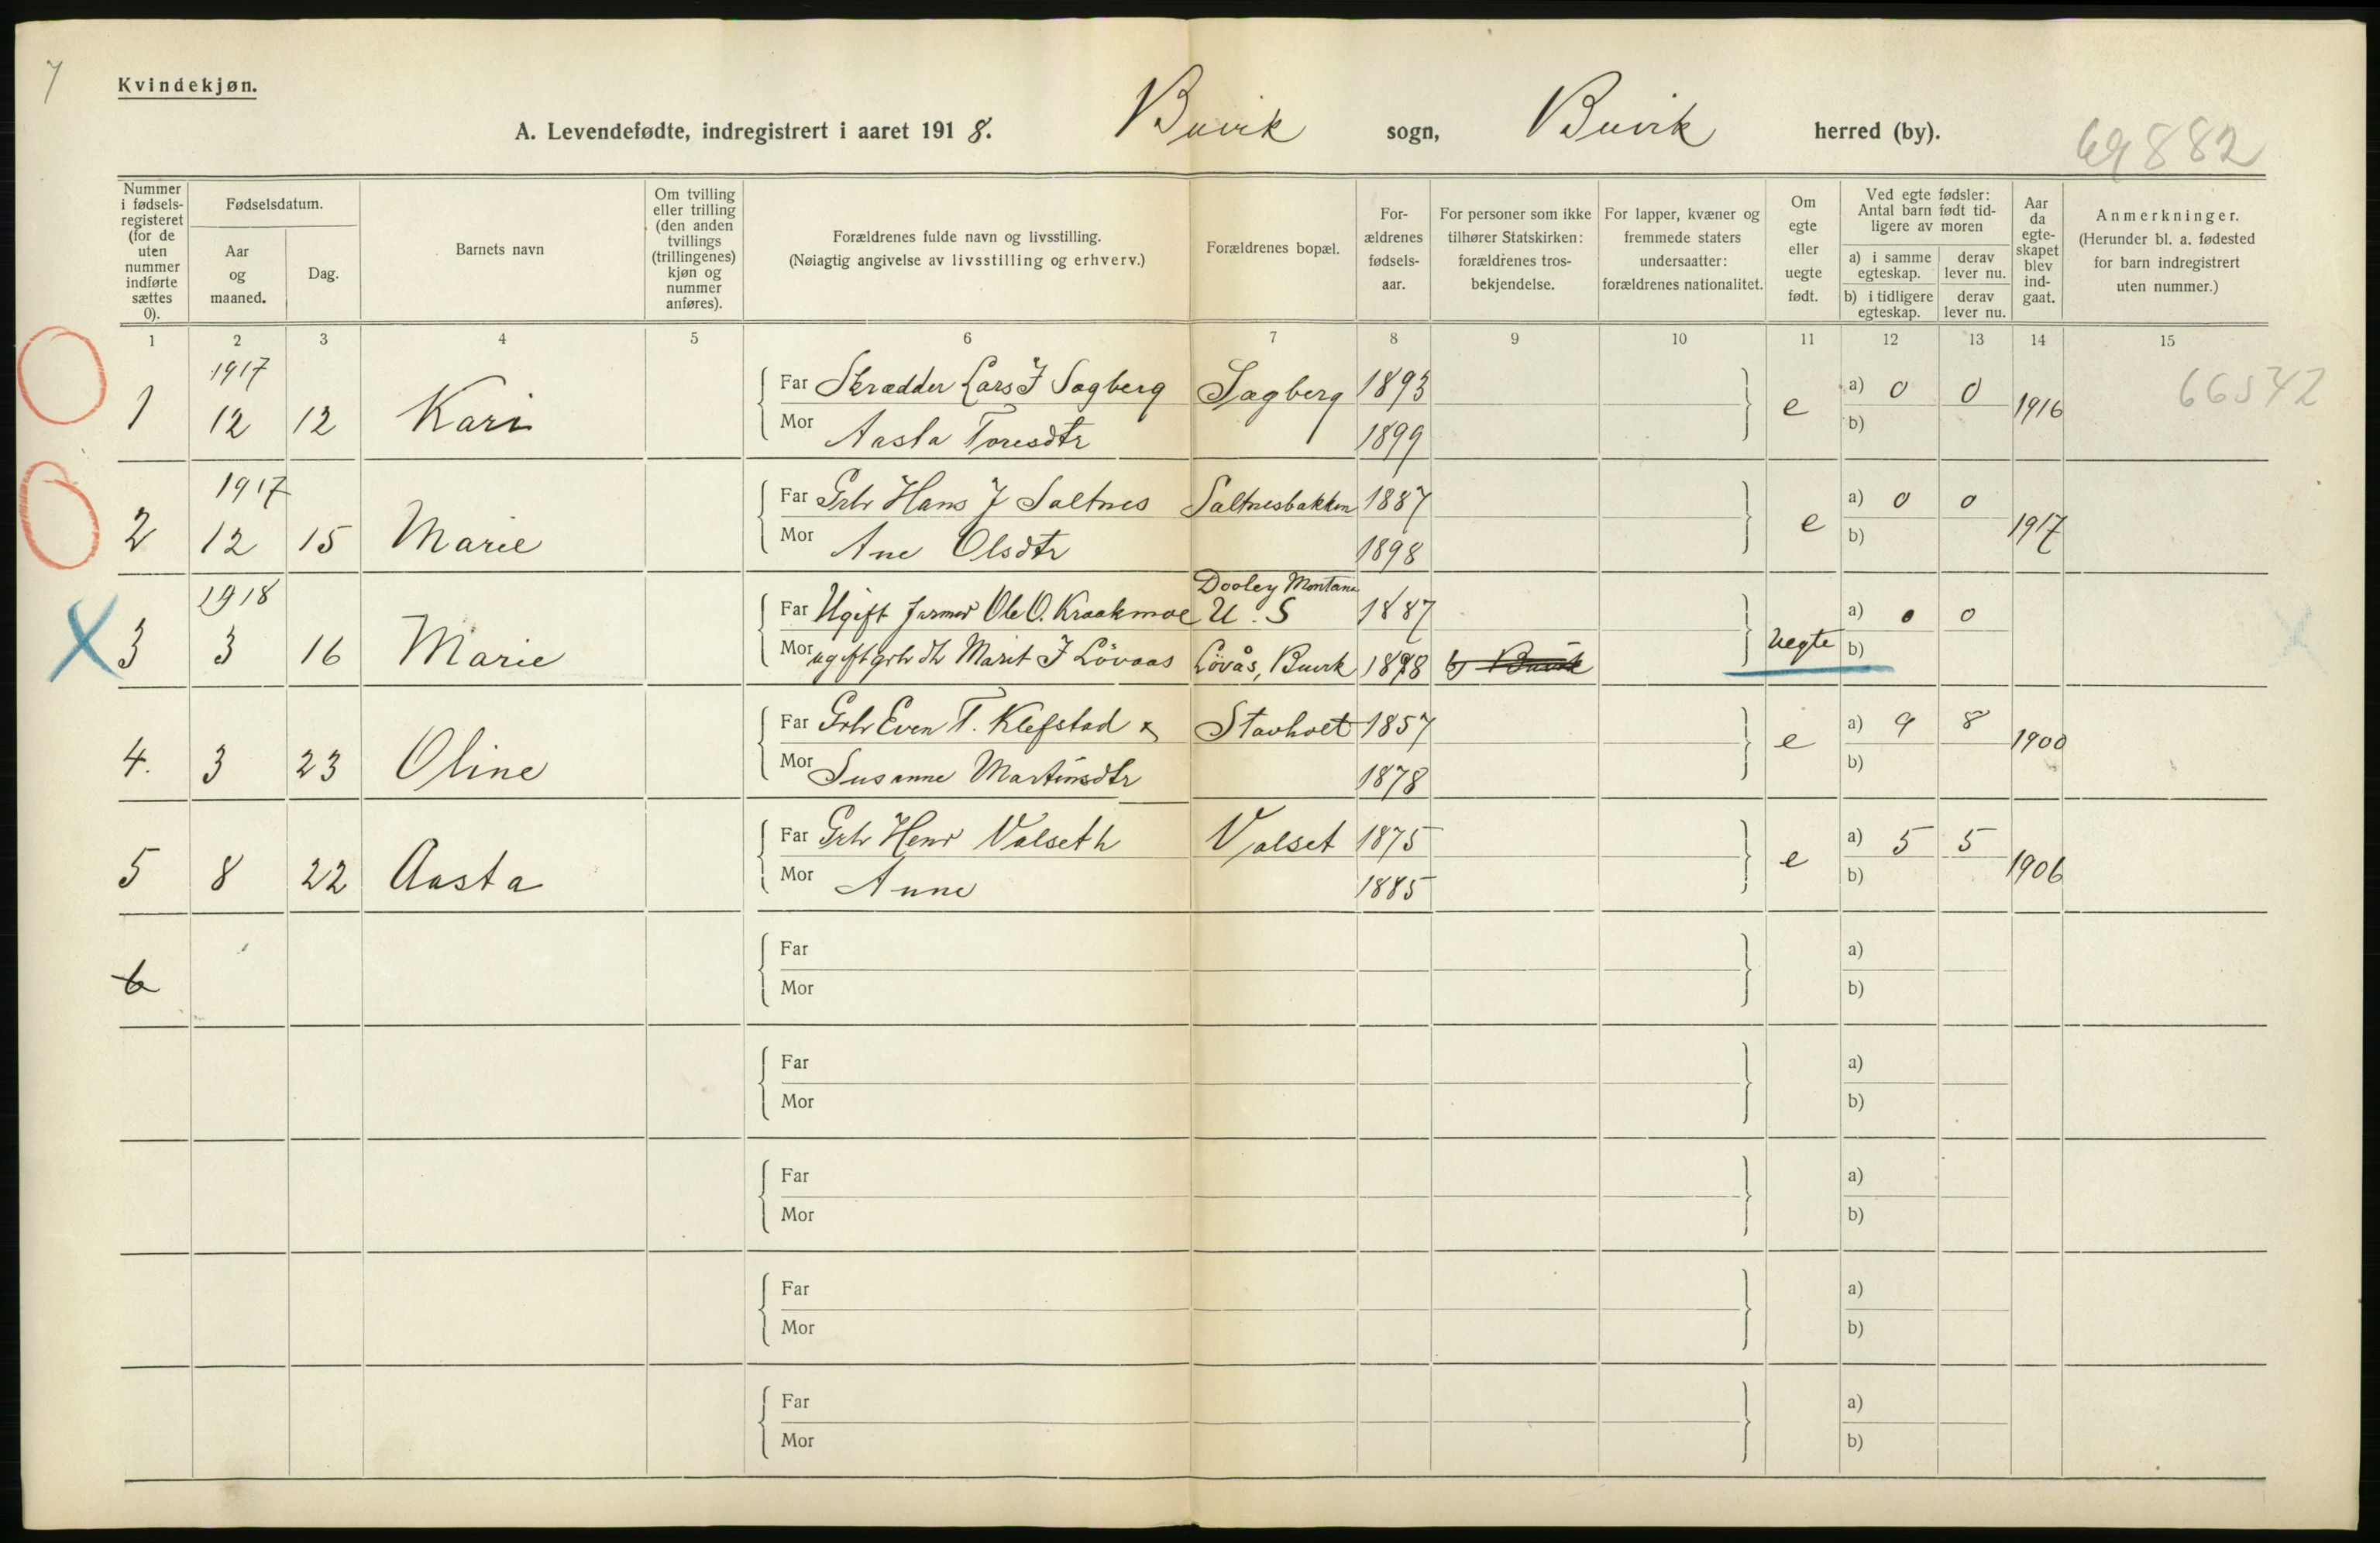 7
Kvindekjøn.
A. Levendefødte, indregistrert i aaret 1918. Buvik sogn, Buvik herred (by).
69882
Nummer i fødsels-registeret (for de uten nummer indførte sættes 0).
Fødselsdatum.
Aar og maaned.
Dag.
Barnets navn
Om tvilling eller trilling (den anden tvillings (trillingenes) kjøn og nummer anføres).
Forældrenes fulde navn og livsstilling.
(Nøiagtig angivelse av livsstilling og erhverv.)
Forældrenes bopæl.
For-ældrenes fødsels-aar.
For personer som ikke tilhører Statskirken: forældrenes tros-bekjendelse.
For lapper, kvæner og fremmede staters undersaatter: forældrenes nationalitet.
Om egte eller uegte født.
Ved egte fødsler: Antal barn født tid-ligere av moren
a) i samme egteskap.
derav lever nu.
b) i tidligere egteskap.
derav lever nu.
Aar da egte-skapet blev ind-gaat.
Anmerkninger.
(Herunder bl. a. fødested for barn indregistrert uten nummer.)
1 2 3 4 5 6 7 8 9 10 11 12 13 14 15
1917
Far Skrædder Lars J Sagberg Sagberg 1893 a) 0 0 66542
1 12 12 Kari e 1916
Mor Aasta Toresdtr 1899 b)
1917
Far Grbr Hans J Saltnes Saltnesbakken 1887 a) 0 0
2 12 15 Marie e 1917
Mor Ane Olsdtr 1898 b)
1918 Dooley Montana
Far Ugift farmer Ole O. Kraakmoe U. S 1887 a) 0 0
X 3 3 16 Marie Uegte X
Mor ugift grbr dtr Marit J Lövaas Lövås, Buvik 1898 b) Buvik b)
Far Grbr Even T. Klefstad & Stavholt 1857 a) 9 8
4. 3 23 Oline e 1900
Mor Susanne Martinsdtr 1878 b)
Far Grbr Henr Valseth Valset 1875 a) 5 5
5 8 22 Aasta e 1906
Mor Anne 1885 b)
Far a)
6
Mor b)
Far a)
Mor b)
Far a)
Mor b)
Far a)
Mor b)
Far a)
Mor b)